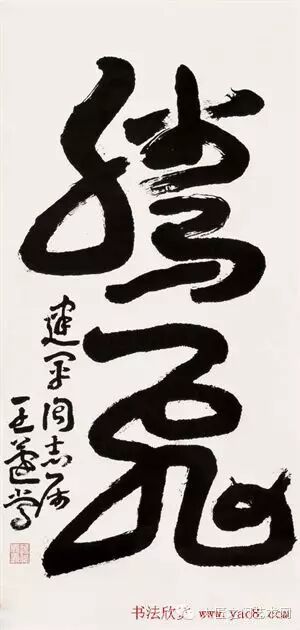 腾飞
建平同志属
王蘧常
书法欣 www.yac8.com